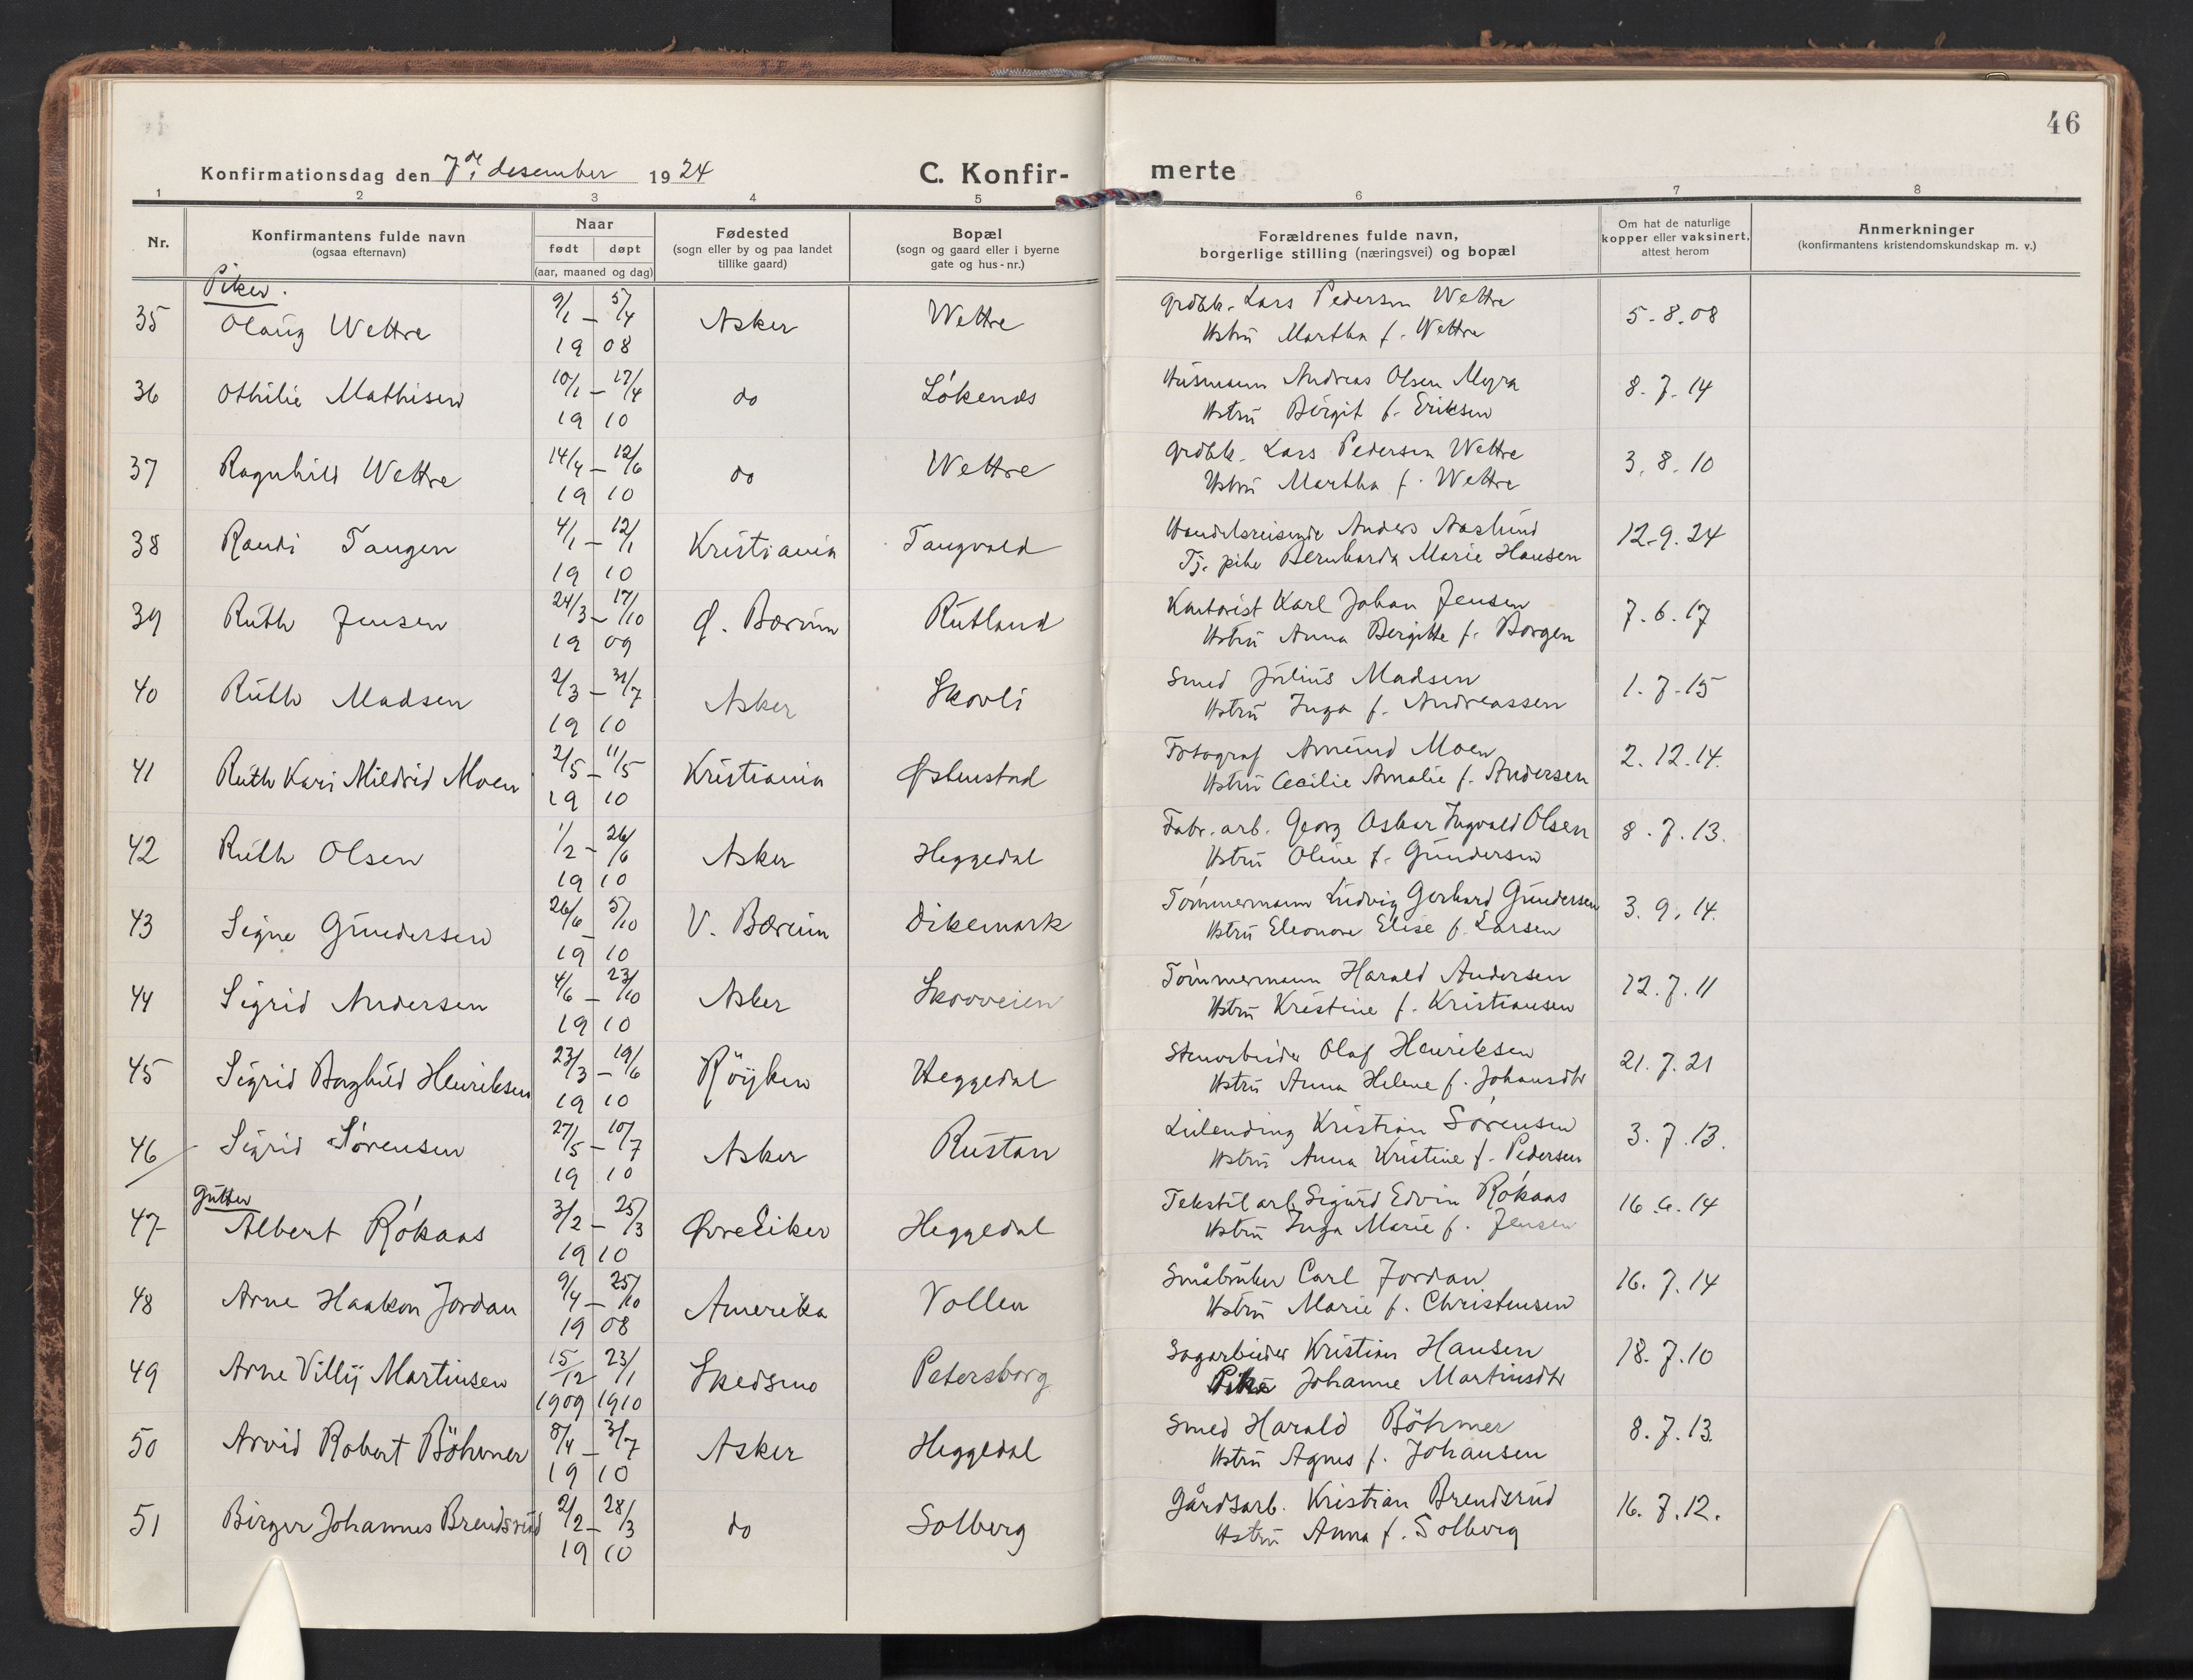 46
Konfirmationsdag den 7de desember 1924
C. Konfir-
merte
1 2 3 4 5 6 7 8
Nr.
Konfirmantens fulde navn
(ogsaa efternavn)
Naar
født døpt
(aar, maaned og dag)
Fødested
(sogn eller by og paa landet
tillike gaard)
Bopæl
(sogn og gaard eller i byerne
gate og hus-nr.)
Forældrenes fulde navn,
borgerlige stilling (næringsvei) og bopæl
Om hat de naturlige
kopper eller vaksinert,
attest herom
Anmerkninger
(konfirmantens kristendomskundskap m. v.)
Piker.
35 Olaug Wettre 9/1 – 5/4 1908 Asker Wettre Grdbr. Lars Pedersen Wettre 5-8.08
Hstru Martha f. Wettre
36 Othilie Mathisen 10/1 – 17/4 1910 do Løkenes Husmann Andreas Olsen Myra 8.7.14
Hstru Birgit f. Eriksen
37 Ragnhild Wettre 14/4 – 12/6 1910 do Wettre Grdbr. Lars Pedersen Wettre 3.8.10
Hstru Martha f. Wettre
38 Randi Tangen 4/1 – 12/1 1910 Kristiania Tangvald Handelsreisende Anders Aaslund 12.9.24
Tj. pike Bernharda Marie Hansen
39 Ruth Jensen 24/3 – 17/10 1909 Ø. Bærum Rutland Kontorist Karl Johan Jensen 7.6.17
Hstru Anna Bergitte f. Borgen
40 Ruth Madsen 2/3 – 31/7 1910 Asker Skovli Smed Julius Madsen 1.7.15
Hstru Inga f. Andreassen
41 Ruth Kari Mildrid Moen 2/5 – 11/5 1910 Kristiania Østenstad Fotograf Amund Moen 2.12.14.
Hstru Cecilie Amalie f. Andersen
42 Ruth Olsen 1/2 – 26/6 1910 Asker Heggedal Fabr. arb. Georg Oskar Ingvald Olsen 8.7.13.
Hstru Oline f. Gundersen
43 Signe Gundersen 26/6 – 5/10 1910 V. Bærum Dikemark Tømmermann Ludvig Gerhard Gundersen 3.9.14.
Hstru Eleonore Elise f. Larsen
44 Sigrid Andersen 4/6 – 23/10 1910 Asker Skovveien Tømmermann Harald Andersen 12.7.11
Hstru Kristine f. Kristiansen
45 Sigrid Borghild Henriksen 23/3 – 19/6 1910 Røyken Heggedal Stenarbeider Olaf Henriksen 21.7.21
Hstru Anna Helene f. Johansdtr
46 Sigrid Sørensen 27/5 – 10/7 1910 Asker Rustan Leilending Kristian Sørensen 3.7.13.
Hstru Anna Kristine f. Pedersen
Gutter
47 Albert Røkaas 3/2 – 25/3 1910 Øvre Eiker Heggedal Tekstilarb. Sigurd Edvin Røkaas 16.6.14
Hstru Inga Marie f. Jensen
48 Arne Haakon Jordan 9/4 – 25/10 1908 Amerika Vollen Småbruker Carl Jordan 16.7.14
Hstru Marie f. Christensen
49 Arne Villy Martinsen 15/12 23/1 1909 1910 Skedsmo Petersborg Sagarbeider Kristian Hansen 18.7.10
Pike Johanne Martinsdtr
50 Arvid Robert Böhmer 8/4 – 3/7 1910 Asker Heggedal Smed Harald Böhmer 8.7.13.
Hstru Agnes f. Johansen
51 Birger Johannes Brendsrud 2/2 – 28/3 1910 do Solberg Gårdsarb. Kristian Brendsrud 16.7.12.
Hstru Anna f. Solberg